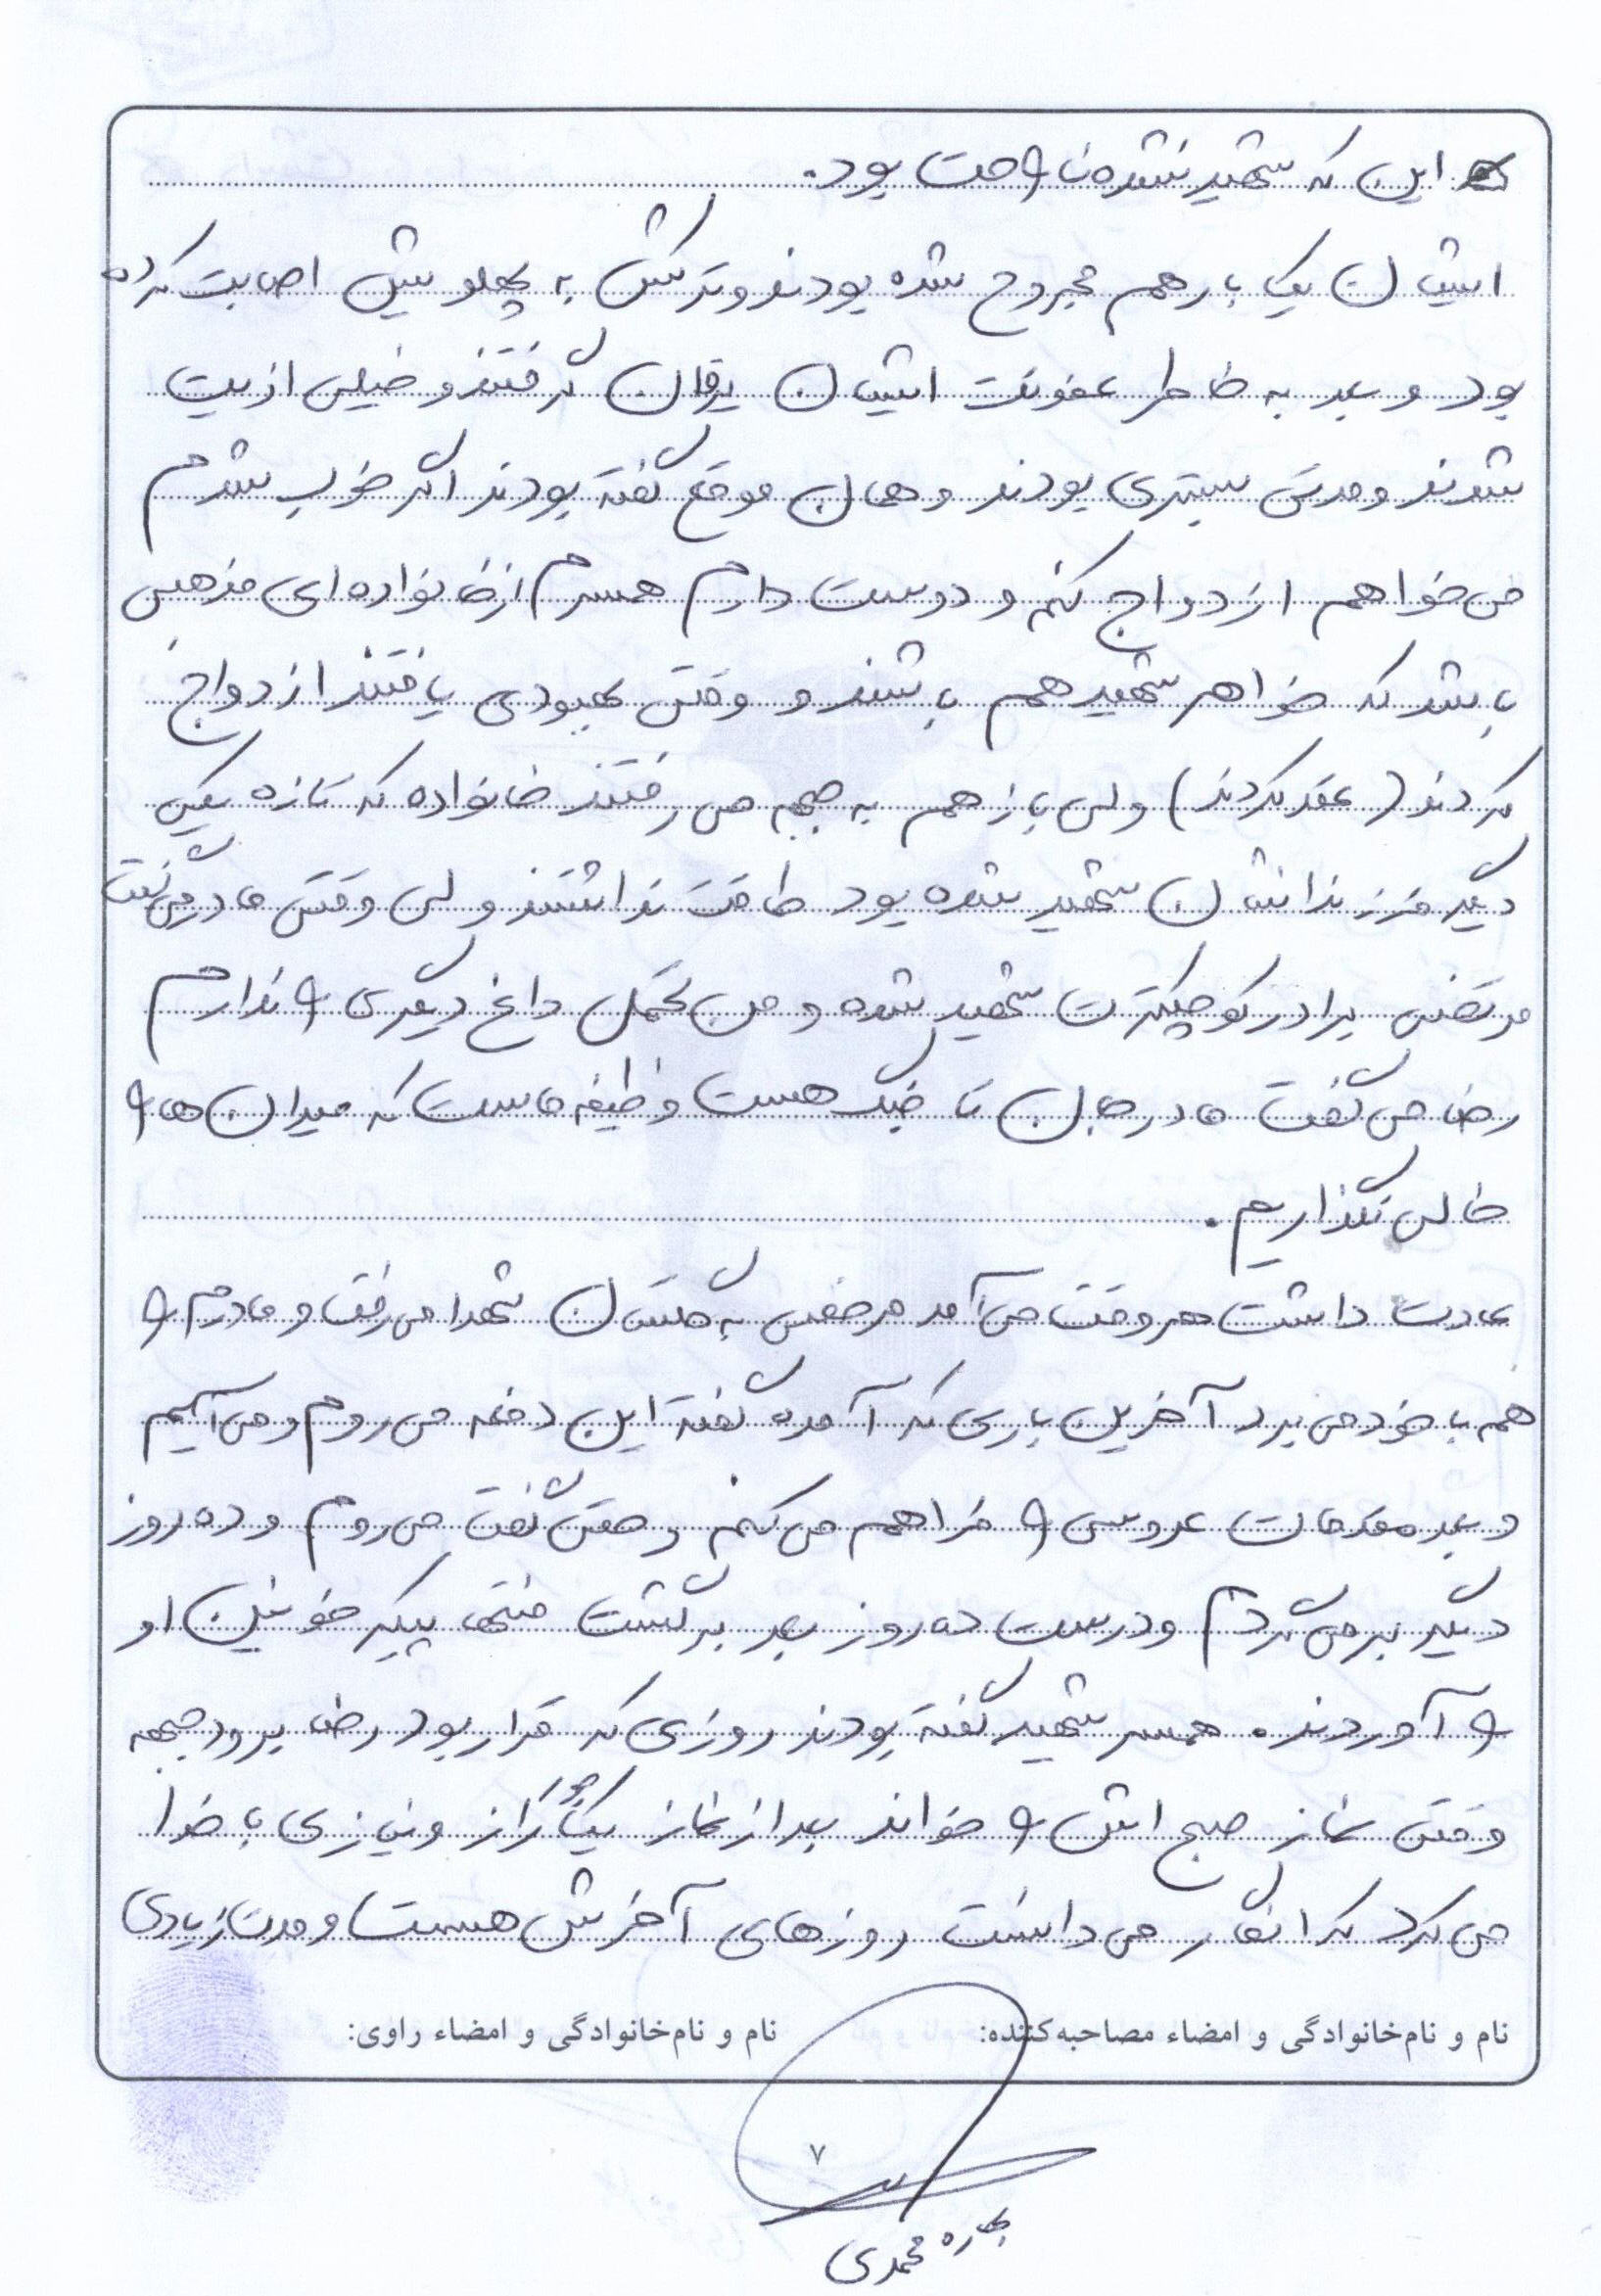 این که شهید نشده ناراحت بود.
ایشان یک بار هم مجروح شده بودند و ترکش به پهلویش اصابت کرده
بود و بعد به خاطر عفونت ایشان یرقان گرفتند و خیلی اذیت
شدند و مدتی بستری بودند و همان موقع گفته بودند اگر خوب شدم
می خواهم ازدواج کنم و دوست دارم همسرم از خانواده ای مذهبی
باشد که خواهر شهید هم باشند و وقتی بهبودی یافتند ازدواج
کردند (عقد کردند) ولی باز هم به جبهه می رفتند خانواده که تازه یکی
دیگر فرزندانشان شهید شده بود طاقت نداشتند ولی وقتی مادر می گفت
مرتضی برادر کوچکترت شهید شده و من تحمل داغ دیگری را ندارم
رضا می گفت مادر جان تا جنگ هست وظیفه ماست که میدان ها را
خالی نگذاریم.
عادت داشت هر وقت می آمد مرخصی به گلستان شهدا می رفت و مادرم را
هم با خود می برد آخرین باری که آمده گفته این دفعه می روم و می آییم
و بعد مقدمات عروسی را فراهم می کنم وقتی گفت می روم و ده روز
دیگر برمی گردم و درست ده روز بعد برگشت منتهی پیکر خونین او
را آوردند. همسر شهید گفته بودند روزی که قرار بود رضا برود جبهه
وقتی نماز صبح اش را خواند بعد از نماز یک راز و نیازی با خدا
می کرد که انگار می دانست روزهای آخرش هست و مدت زیادی
نام و نام خانوادگی و امضاء مصاحبه کننده: نام و نام خانوادگی و امضاء راوی:
۷
بهاره محمدی